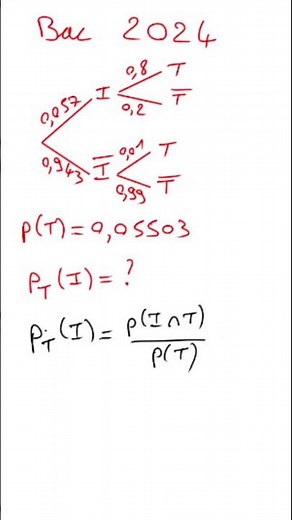 Bac 2024
0,8 T
I
0,057 0,2 T̅
0,943 0,01 T
I̅
0,99 T̅
P(T) = 0,05503
P_T (I) = ?
P_T (I) = P(I ∩ T) / P(T)